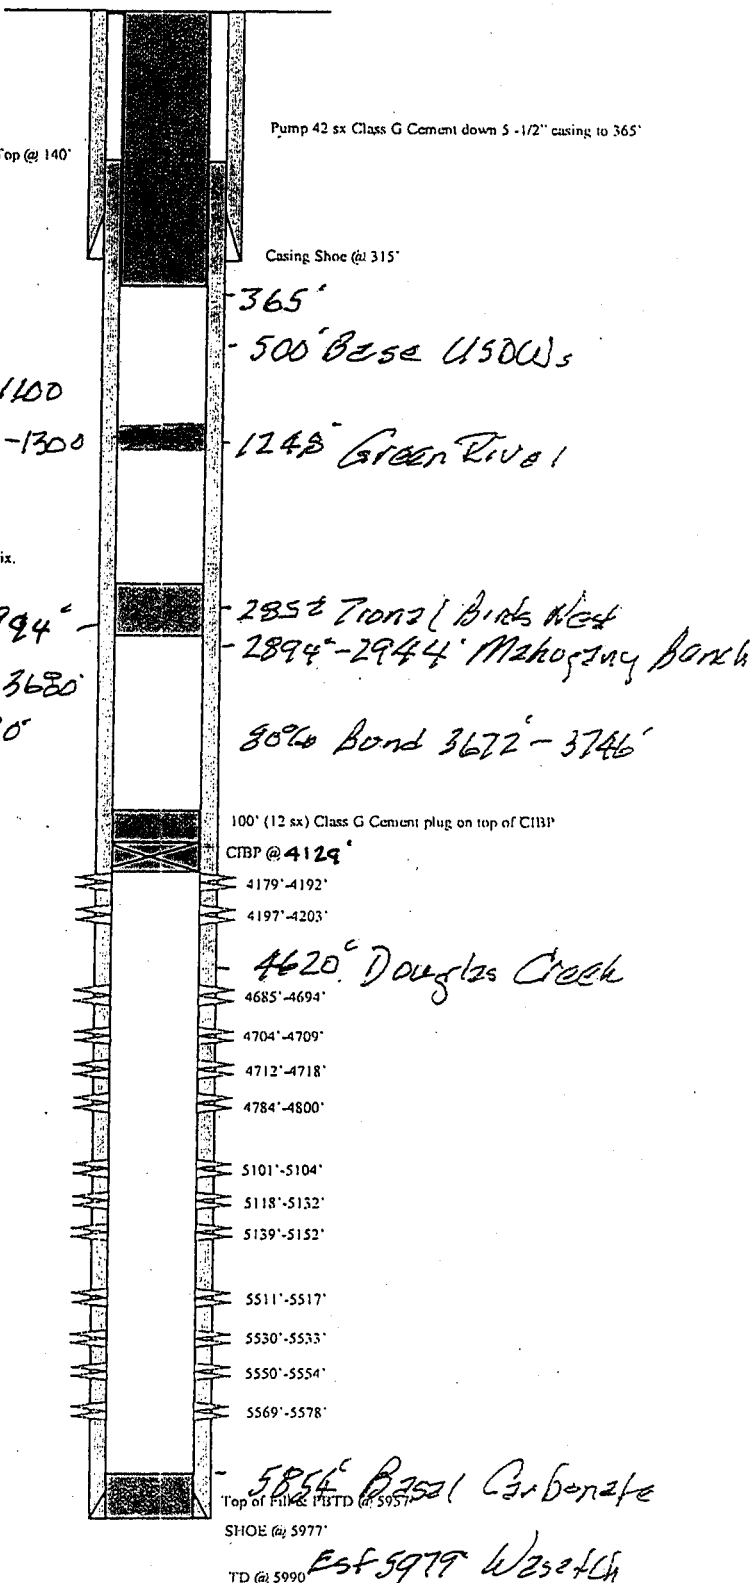 Pump 42 sx Class G Cement down 5 -1/2" casing to 365'
Top @ 140'
Casing Shoe @ 315'
365'
500' Base USDWs
1100
-1300
1248' Green River
ix.
2852 Zonal Birds Nest
994'
2894'-2944' Mahogany Bench
3680'
0'
80% Bond 3672'-3746'
100' (12 sx) Class G Cement plug on top of CIBP
CIBP @ 4129'
4179'-4192'
4197'-4203'
4620' Douglas Creek
4685'-4694'
4704'-4709'
4712'-4718'
4784'-4800'
5101'-5104'
5118'-5132'
5139'-5152'
5511'-5517'
5530'-5533'
5550'-5554'
5569'-5578'
5854' Basal Carbonate
Top of Fill & PBTD @ 5957'
SHOE @ 5977'
TD @ 5990 Est 5979' Wasatch